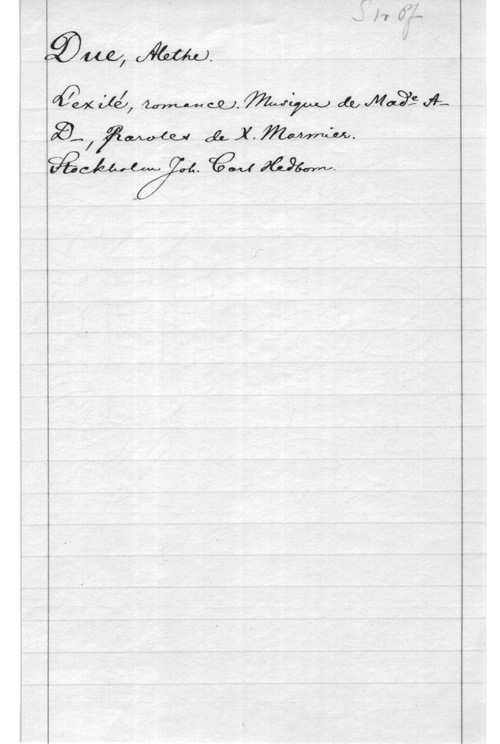 S m pf
Due, Alethe.
L'exilé, romance. Musique de Made A-
D-, Paroles de X. Marmier.
Stockholm Joh. Carl Hedbom.